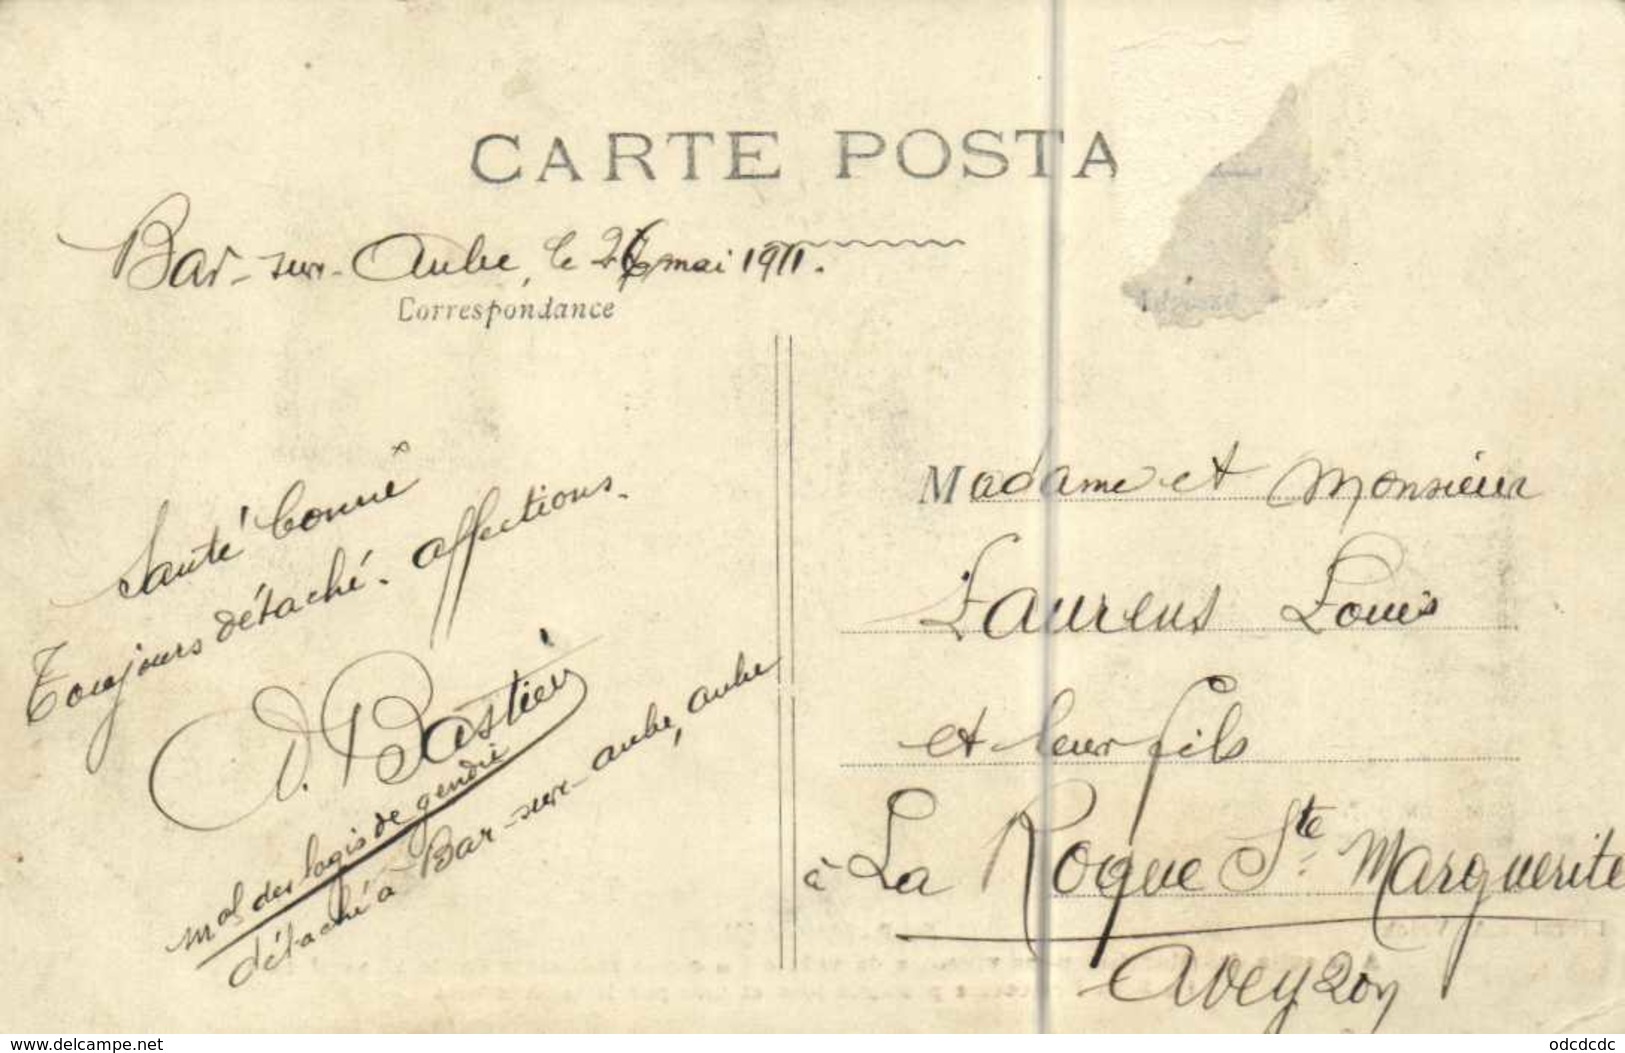 CARTE POSTA
Bar-sur-Aube, le 26 mai 1911.
Correspondance
Santé bonne
Toujours détaché. affections.
D. Bastien
Mal des logis de gendie
détaché à Bar-sur-aube, aube
Madame et Monsieur
Laurens Louis
et leur fils
à La Roque Ste Marguerite
Aveyron
www.delcampe.net
odcdcdc